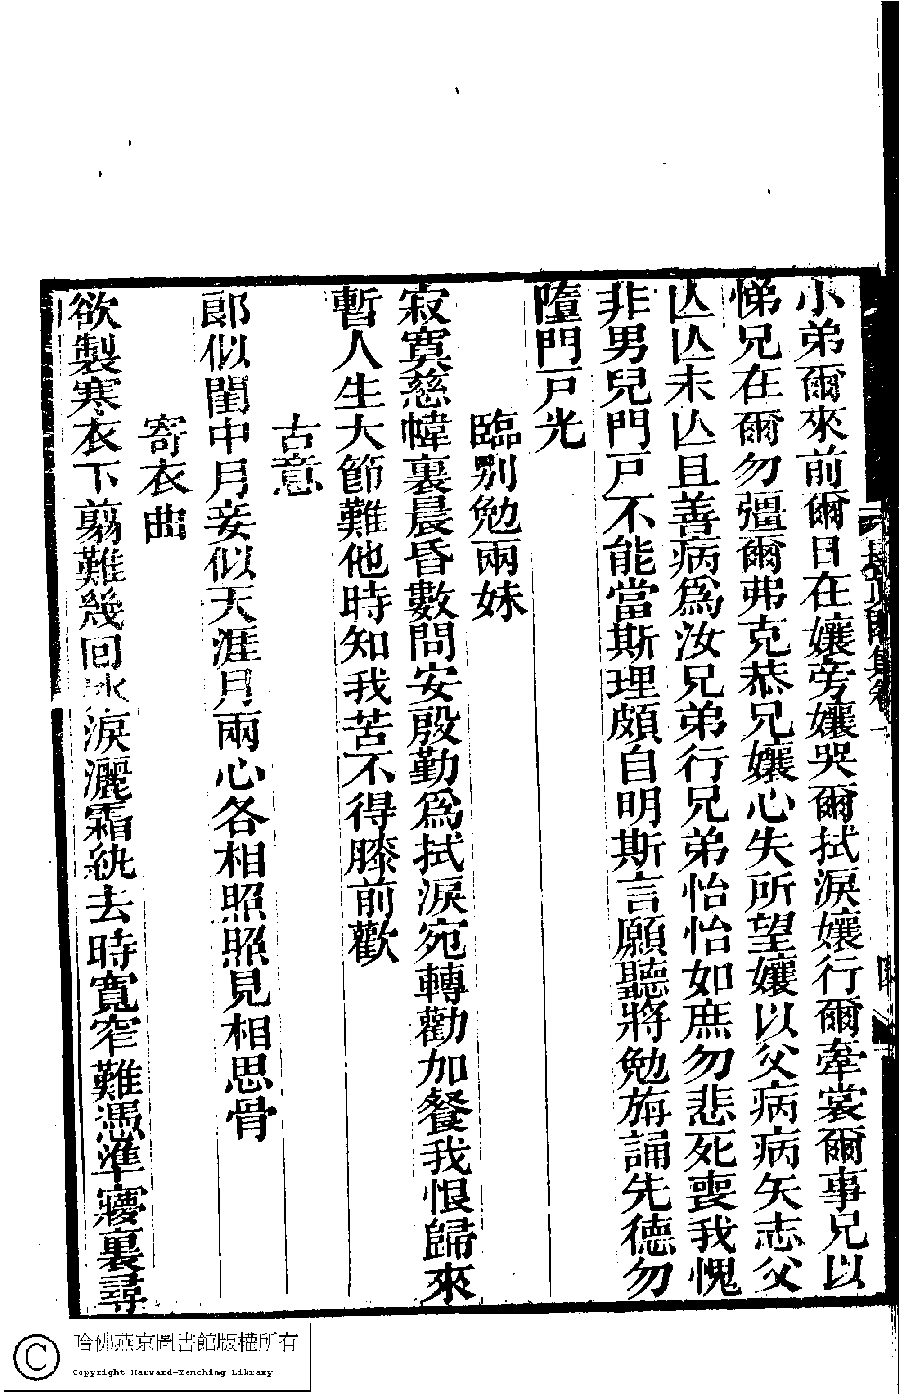 小弟爾來前爾日在孃旁孃哭爾拭淚孃行爾牽裳爾事兄以
悌兄在爾勿彊爾弗克恭兄孃心失所望孃以父病病矢志父
亾亾未亾且善病爲汝兄弟行兄弟怡怡如庶勿悲死喪我愧
非男兒門戸不能當斯理頗自明斯言願聽將勉旃誦先德勿
墮門戸光
臨别勉兩妹
寂寞慈幃裏晨昏數問安殷勤爲拭淚宛轉勸加餐我恨歸來
暫人生大節難他時知我苦不得膝前歡
古意
郞似閨中月妾似天涯月兩心各相照照見相思骨
寄衣曲
欲製寒衣下翦難幾回冰淚灑霜紈去時寬窄難憑準寢裏尋
哈佛燕京圖書館版權所有
Copyright Harvard-Yenching Library